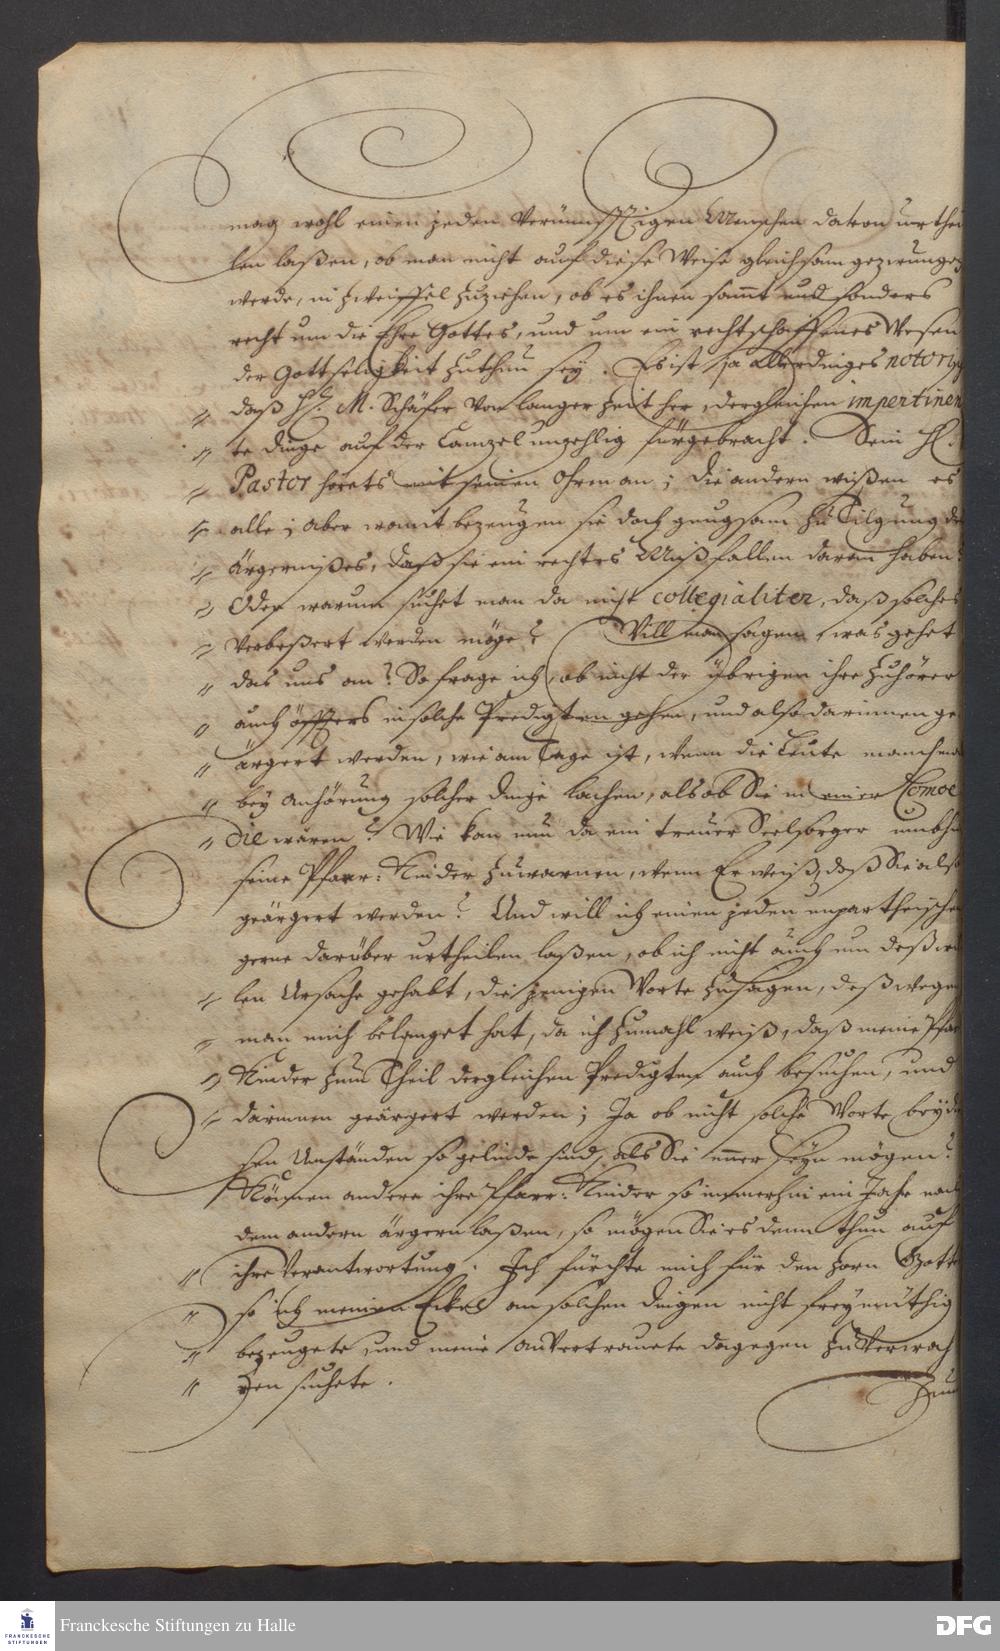 mag wohl einen jeden Vernünfftigen Menschen davon urthei
len laßen, ob man nicht auf diese Weise gleichsam gezwungen
werde, in zweiffel zuziehen, ob es ihnen sammt und sonders
recht um die Ehre Gottes, und um ein rechtschaffenes Wesen
der Gottseligkeit zuthun sey. Es ist ja allerdinges notori
daß H. M. Schäfer von langer Zeit her, dergleichen impertinen
te dinge auf der Cantzel unzehlig fürgebracht. Sein H.
Pastor hörets mit seinen Ohren an; die andern wißen es
alle; aber womit bezeugen sie doch gnugsam zu Tilgung de
ärgernißes, daß sie ein rechtes Mißfallen daran haben?
Oder warum suchet man da nicht collegialiter, daß solches
verbeßert werden möge? Will man sagen, was gehet
das uns an? So frage ich, ob nicht der übrigen ihre Zuhörer
auch öffters in solche Predigten gehen, und also darinnen ge
ärgert werden, wie am Tage ist, wenn die Leute manchma
bey Anhörung solcher dinge lachen, als ob Sie in einer Comoe
die wären? Wie kan nun da ein treuer Seelsorger umbhin
seine Pfarr-Kinder zuwarnen, wenn Er weiß, daß Sie also
geärgert werden? Und will ich einen jeden unpartheyischen
gerne darüber urtheilen laßen, ob ich nicht auch um deßwil
len Ursache gehabt, die jenigen Worte zusagen, deßwegen
man mich belanget hat, da ich zumahl weiß, daß meine Pfar
Kinder zum Theil dergleichen Predigten auch besuchen, und
darinnen geärgert werden; Ja ob nicht solche Worte bey die
sen Umständen so gelinde sind, als Sie immer seyn mögen?
Können andere ihre Pfarr-Kinder so immerhin ein Jahr nach
dem andern ärgern laßen, so mögen Sie es denn thun auf
ihre Verantwortung. Ich fürchte mich für den Zorn Gotte
so ich meinen Eckel an solchen dingen nicht freymüthig
bezeugete und meine anvertrauete dagegen zu verwah
ren suchete.
Zum
Franckesche Stiftungen zu Halle
FRANCKESCHE
STIFTUNGEN
DFG